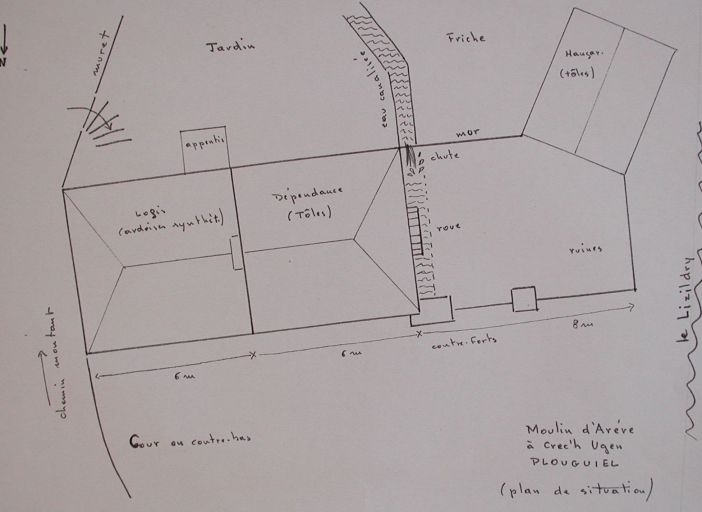 N
muret
Jardin
eau canalisée
Friche
Hangar
(tôles)
appentis
mur
chute
Logis
(ardoise synthét.)
Dépendance
(Tôles)
roue
ruines
le Lizildry
chemin montant
6 m
6 m
contre-forts
8 m
Cour en contre-bas
Moulin d'Arére
à Crec'h Ugen
PLOUGUIEL
(plan de situation)